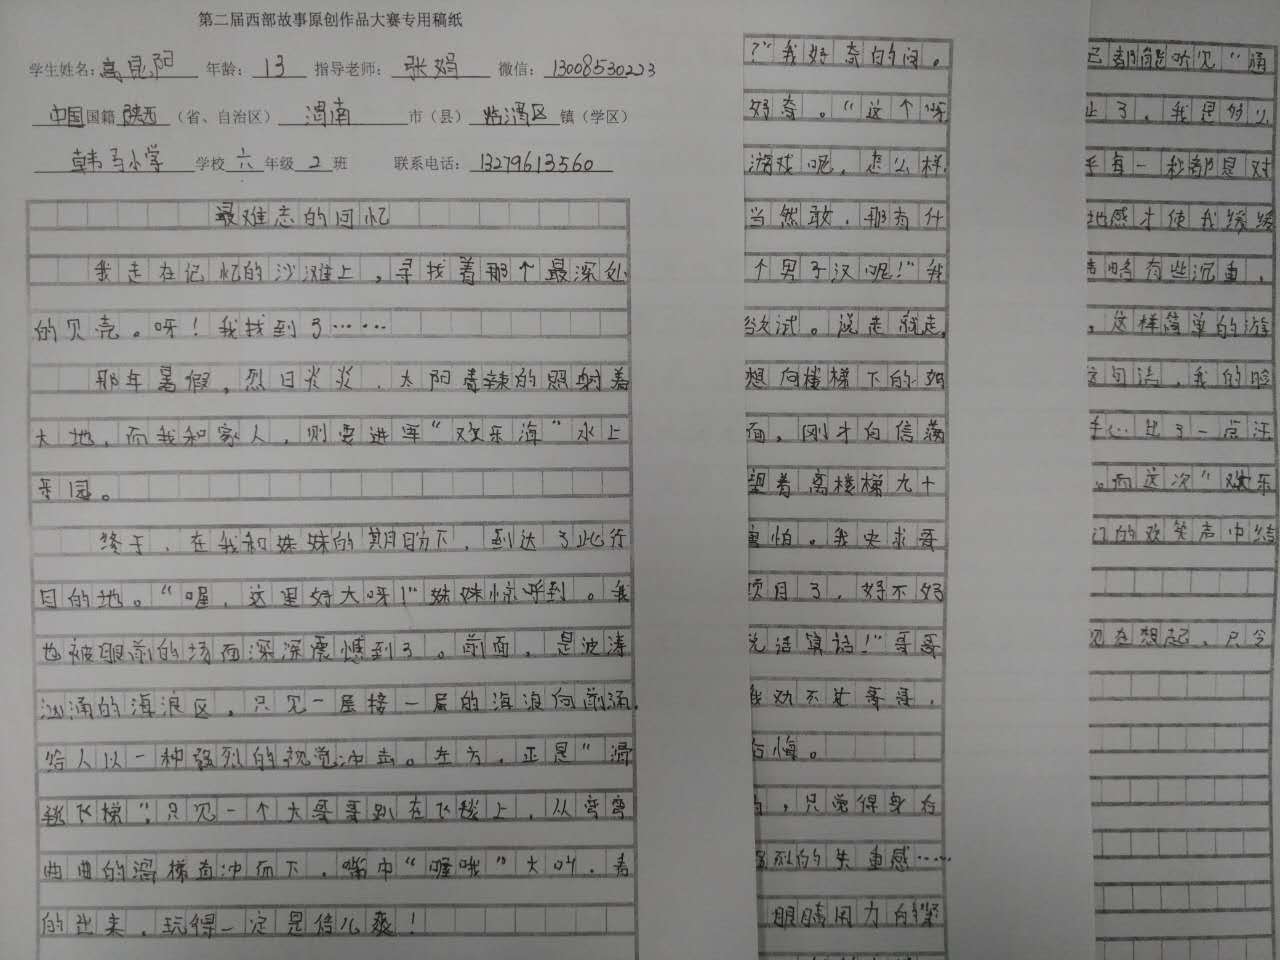 第二届西部故事原创作品大赛专用稿纸
学生姓名：高昆阳 年龄：13 指导老师：张娟 微信：13008530223
中国国籍 陕西（省、自治区） 渭南 市（县） 临渭区 镇（学区）
韩马小学 学校 六 年级 2 班 联系电话：13279613560
最难忘的回忆
我走在记忆的沙滩上，寻找着那个最深处
的贝壳。呀！我找到了……
那年暑假，烈日炎炎，太阳毒辣的照射着
大地，而我和家人，则要进军“欢乐海”水上
乐园。
终于，在我和妹妹的期盼下，到达了此行
目的地。“喔，这里好大呀！”妹妹惊呼到。我
也被眼前的场面深深震憾到了。前面，是波涛
汹涌的海浪区，只见一层接一层的海浪向前涌，
给人以一种强烈的视觉冲击。左方，正是“滑
毯飞梯”，只见一个大哥哥趴在飞毯上，从弯弯
曲曲的滑梯直冲而下，嘴中“喔哦”大叫，看
的出来，玩得一定是倍儿爽！
？”我好奇的问。
好奇。“这个呀
游戏呢，怎么样，
当然敢，那有什
个男子汉呢！”我
欲试。说走就走，
想向楼梯下的
面，刚才自信满
望着离楼梯九十
害怕。我央求哥
项目了，好不好
说话算话！”哥哥
我劝不过哥哥，
后悔。
，只觉得身右
强烈的失重感……
眼睛因力的
己都能听见“通
止了，我是多么
乎每一秒都是对
地感才使我缓缓
有些沉重，
，这样简单的游
这句话，我的脸
手心出了一点汗
。而这次“欢乐
们的欢笑声中结
现在想起，只令